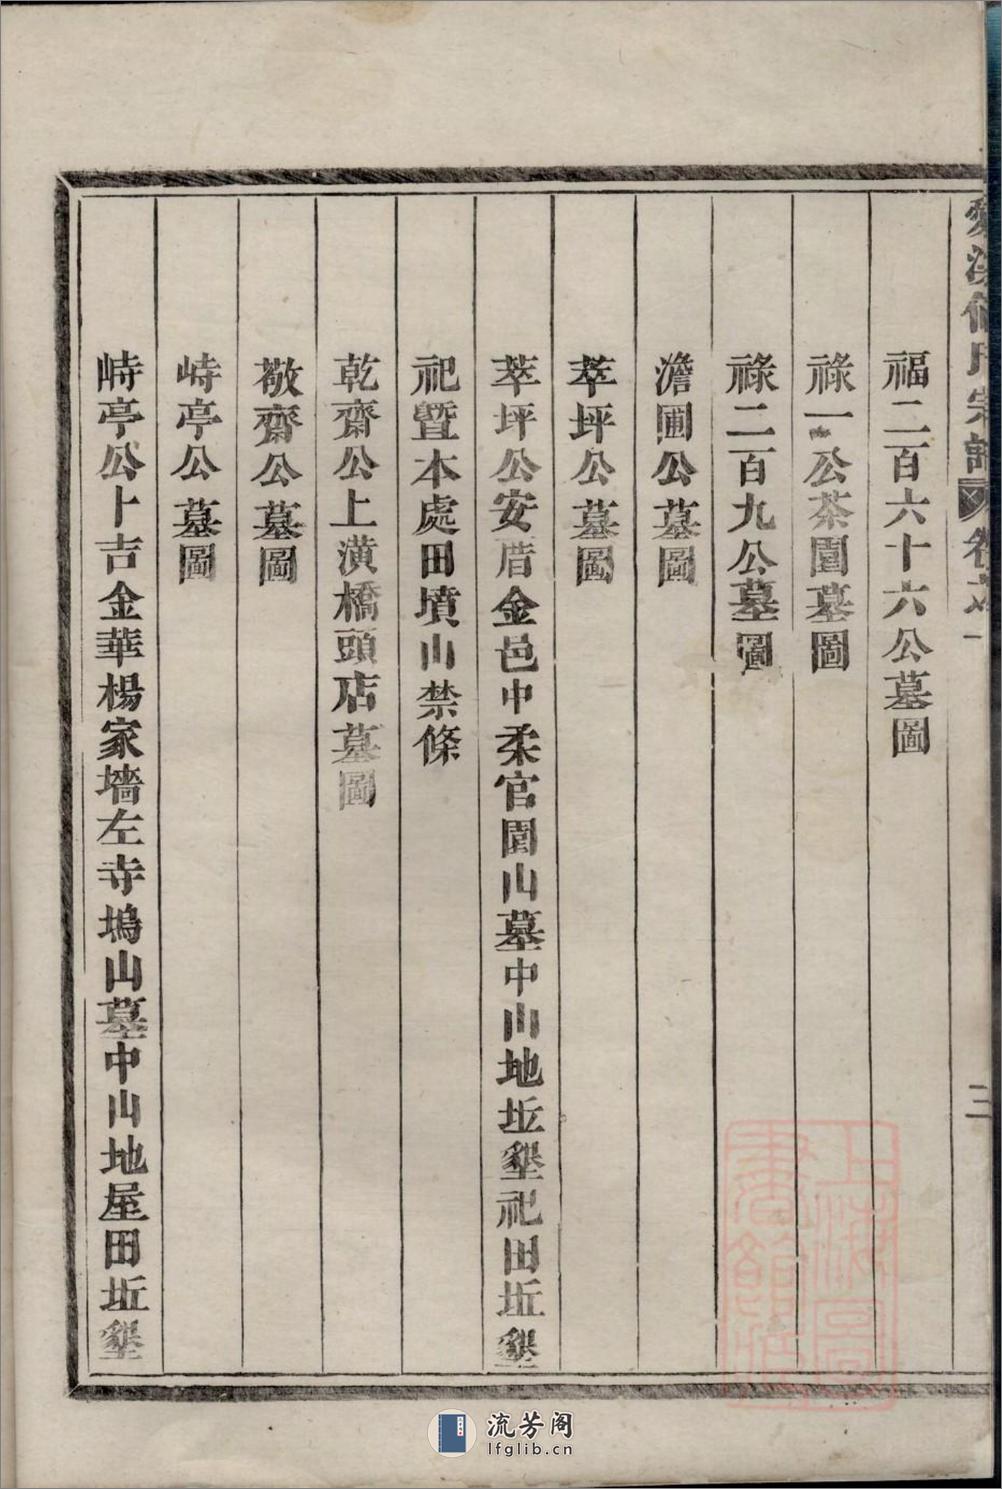 福二百六十六公墓圖
祿一公茶園墓圖
祿二百九公墓圖
澹圃公墓圖
萃坪公墓圖
萃坪公安厝金邑中柔官園山墓中山地坵墾祀田坵墾
祀暨本處田墳山禁條
乾齋公上潢橋頭店墓圖
敬齋公墓圖
峙亭公墓圖
峙亭公卜吉金華楊家墻左寺塢山墓中山地屋田坵墾
溪
氏宗譜
卷
三
上海圖書館藏
流芳阁
lfglib.cn